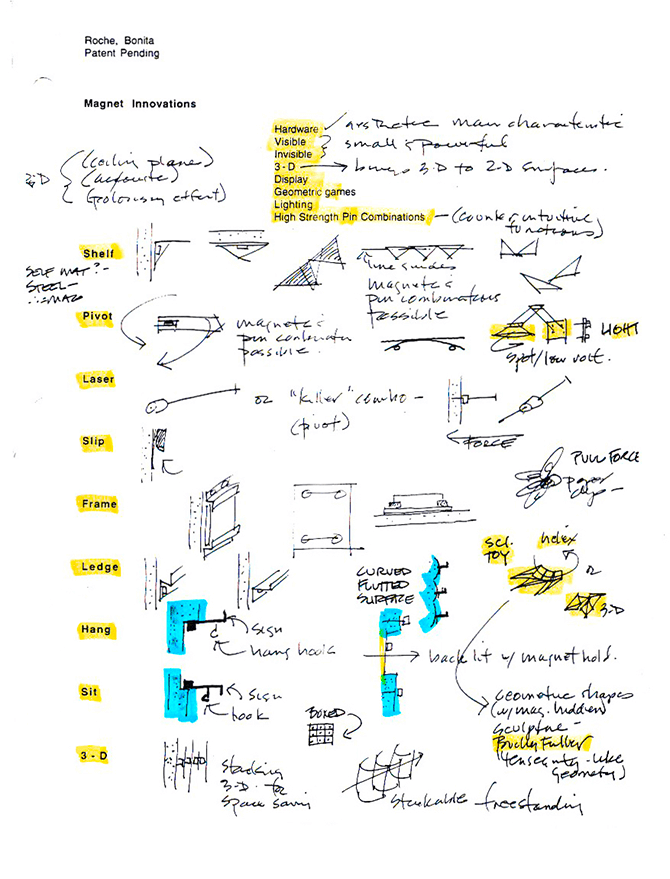 Roche, Bonita
Patent Pending
Magnet Innovations
Hardware
Visible
Invisible
3-D
Display
Geometric games
Lighting
High Strength Pin Combinations
main characteristic
small & powerful
brings 3-D to 2-D surfaces.
(counter intuitive
functions)
3-D
(ceiling planes)
Shelf
SELF MAT?-
STEEL-
magnet &
pin combinations
possible
Pivot
magnet &
pin combination
possible.
LIGHT
spot/low volt.
Laser
or "killer" combo -
(pivot)
FORCE
Slip
PULL FORCE
paper
clips -
Frame
Ledge
CURVED
FLUTTED
SURFACE
SCI.
TOY
helix
or
3-D
Hang
sign
hang hook
back lit w/ magnet hold.
Sit
sign
hook
BOXED
geometric shapes
(w/mag. hidden)
sculpture -
Bucky Fuller
(tensegrity-like
geometry)
3 - D
stacking
3-D for
space saving
stackable freestanding